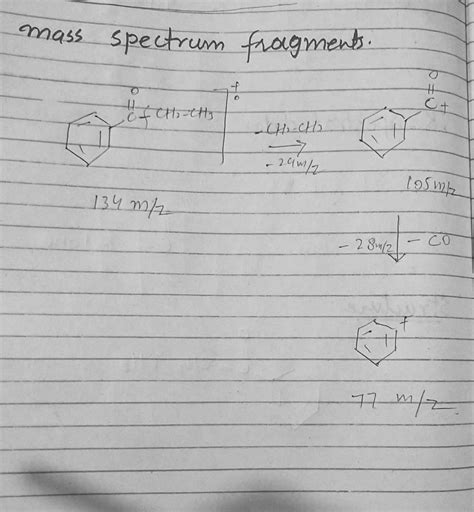 mass spectrum fragments.
O
||
C CH2-CH3
+
134 m/z
-CH2-CH3
-29m/z
O
||
C+
105m/z
-28m/z - CO
+
77 m/z